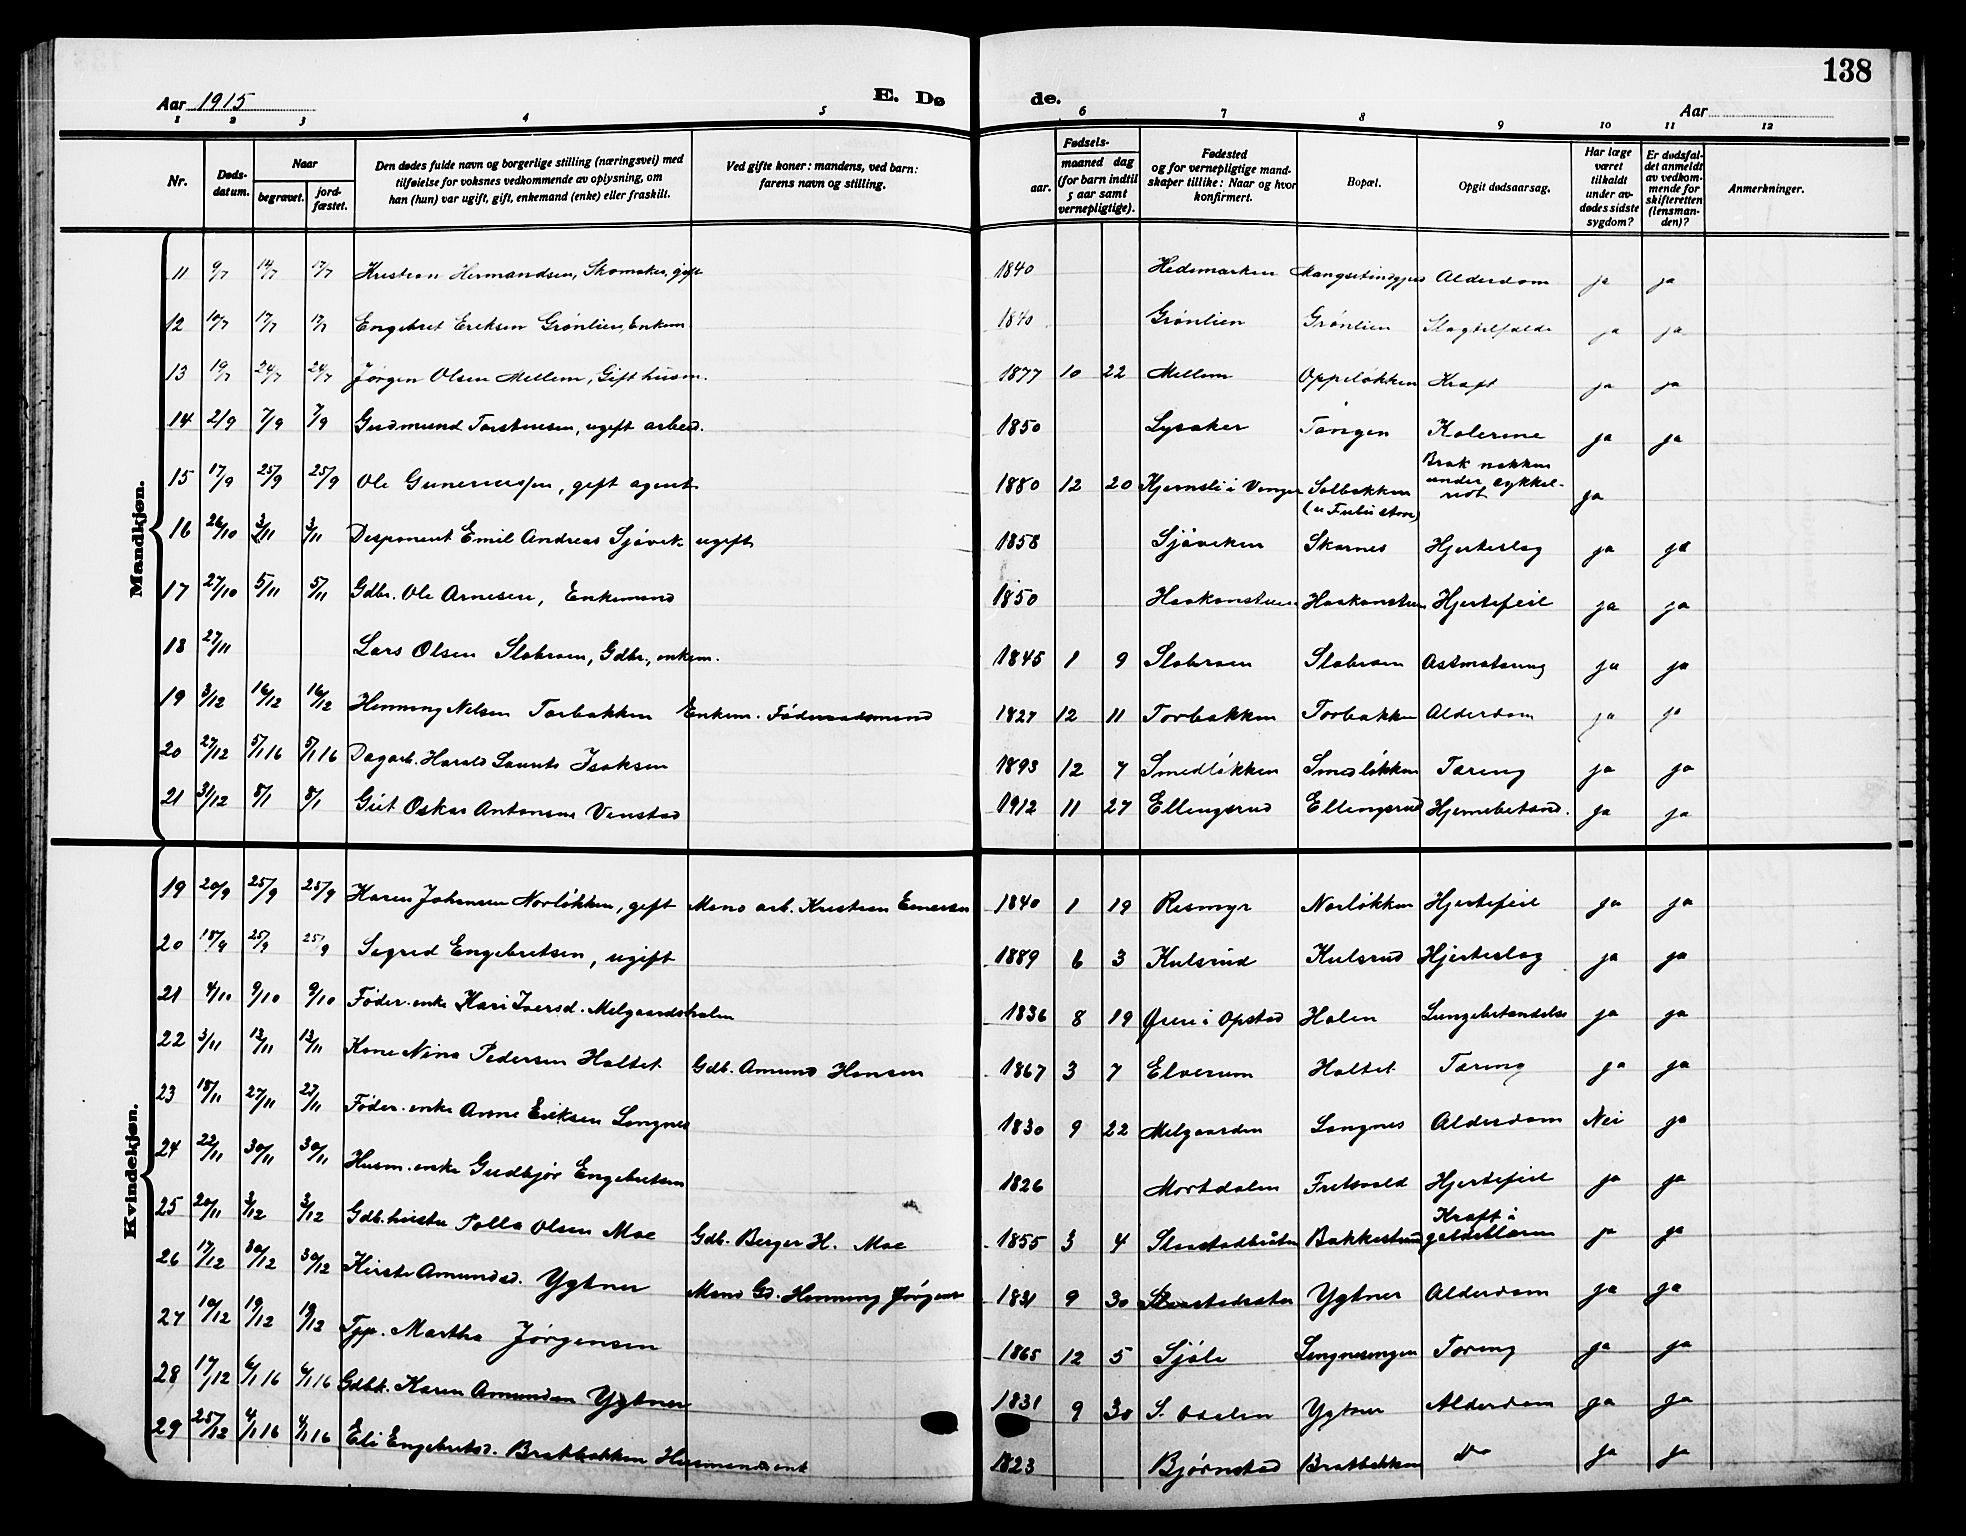 138
Aar 1915 E. Dø de. Aar
1 2 3 4 5 6 7 8 9 10 11 12
Nr. Døds-datum. Naar begravet. jord-fæstet. Den dødes fulde navn og borgerlige stilling (næringsvei) med tilføielse for voksnes vedkommende av oplysning, om han (hun) var ugift, gift, enkemand (enke) eller fraskilt. Ved gifte koner: mandens, ved barn: farens navn og stilling. Fødsels- aar. maaned dag (for barn indtil 5 aar samt vernepligtige). Fødested og for vernepligtige mandskaper tillike: Naar og hvor konfirmert. Bopæl. Opgit dødsaarsag. Har læge været tilkaldt under avdødes sidste sygdom? Er dødsfaldet anmeldt av vedkommende for skifteretten (lensmanden)? Anmerkninger.
Mandkjøn.
11 9/7 14/7 17/7 Kristian Hermandsen, Skomaker, gift 1840 Hedemarken Alderdom ja ja
12 10/7 17/7 17/7 Engebret Eriksen Grönlien, Enkem. 1840 Grönlien Grönlien ja ja
13 19/7 24/7 24/7 Jørgen Olsen Mellem, Gift husm. 1877 10 22 Mellem Oppeløkken Kræft ja ja
14 2/9 7/9 7/9 Gudmund Torstensen, ugift arbeid. 1850 Lysaker Tangen Kolerine ja ja
15 17/9 25/9 25/9 Ole Gunerius­sen, gift agent 1880 12 20 Kjernsli i Vinger Solbakken Brak nakken under cykkel- ja
16 26/10 3/11 3/11 Disponent Emil Andreas Sjövik ugift 1858 Sjöviken Skarnes Hjerteslag ja ja
17 27/10 5/11 5/11 Gdbr. Ole Arnesen, Enkemand 1850 Haakonstuen Haakonstuen Hjertefeil ja ja
18 27/11 Lars Olsen Slobraen, Gdbr., enkem. 1845 1 9 Slobraen Slobraen ja ja
19 3/12 16/12 16/12 Henning Nilsen Torbakken Enkem. Föderaadsmand 1827 12 11 Torbakken Torbakken Alderdom ja ja
20 27/12 5/1 16 5/1 16 Dagarb. Harald Isaksen 1893 12 7 Smedløkken Smedløkken Tæring ja ja
21 31/12 8/1 8/1 Gut Oskar Antonsen Venstad 1912 11 27 Ellingsrud Ellingsrud Hjernebetænd. ja ja
Kvindekjøn.
19 20/9 25/9 25/9 Karen Johansen Norløkken, gift Mand arb. Kristian Einersen 1840 1 19 Resmyr Norløkken Hjertefeil ja ja
20 18/9 25/9 25/9 Sigrid Engebretsen, ugift 1889 6 3 Kulsrud Kulsrud Hjerteslag ja ja
21 4/10 9/10 9/10 Föder.enke Kari Iversd. Melgaardshalen 1836 8 19 i Opstad Halen Lungebetændelse ja ja
22 3/11 12/11 12/11 Kone Nina Pedersen Holtet Gdb. Amund Hansen 1867 3 7 Elverum Holtet Tæring ja ja
23 18/11 27/11 27/11 Föder.enke Anne Eriksen Langnes 1830 9 22 Melgaarden Langnes Alderdom Nei ja
24 22/11 30/11 30/11 Husm.enke Gudbjør Engebretsen 1826 Mortdalen Fritsvold Hjertefeil ja ja
25 20/11 3/12 3/12 Gdb.hustru Polla Olsen Moe Gdb. Berger H. Moe 1855 3 4 Kræft i galdeblæren ja ja
26 17/12 30/12 30/12 Kirsti Amundsd. Ygtner Mand Gd. Henning Jörgens 1831 9 30 Ygtner Alderdom ja ja
27 10/12 19/12 19/12 Martha Jörgensen 1865 12 5 Sjøli Langnesengen Tæring ja ja
28 17/12 6/1 16 6/1 16 Karen Amundsen Ygtner 1831 9 30 S. Odalen Ygtner Alderdom ja ja
29 25/12 4/1 16 4/1 16 Eli Engebretsd. Bratbakken Husmandsenke 1823 Björnstad Bratbakken Do ja ja